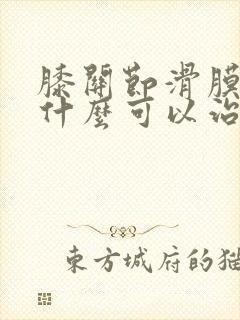 膝關節滑膜
什麼可以治
東方城府的猫